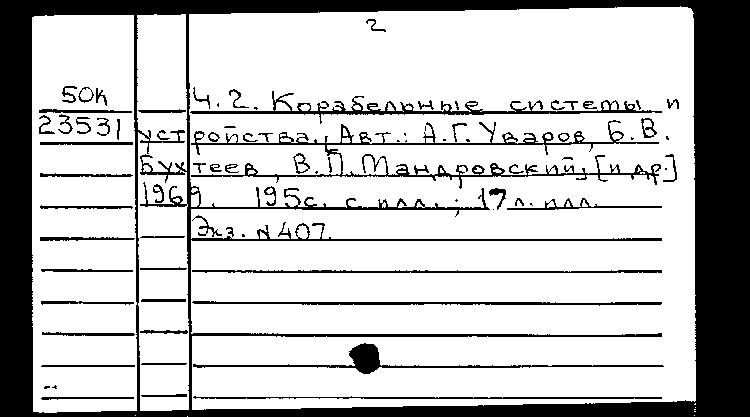 2
50К Ч.2. Корабельные системы и
23531 устройства. [Авт.: А.Г. Уваров, Б.В.
Бухтеев, В.П. Мандровский, [и др.]
1969. 195с. с илл.; 17 л. илл.
Экз. N 407.